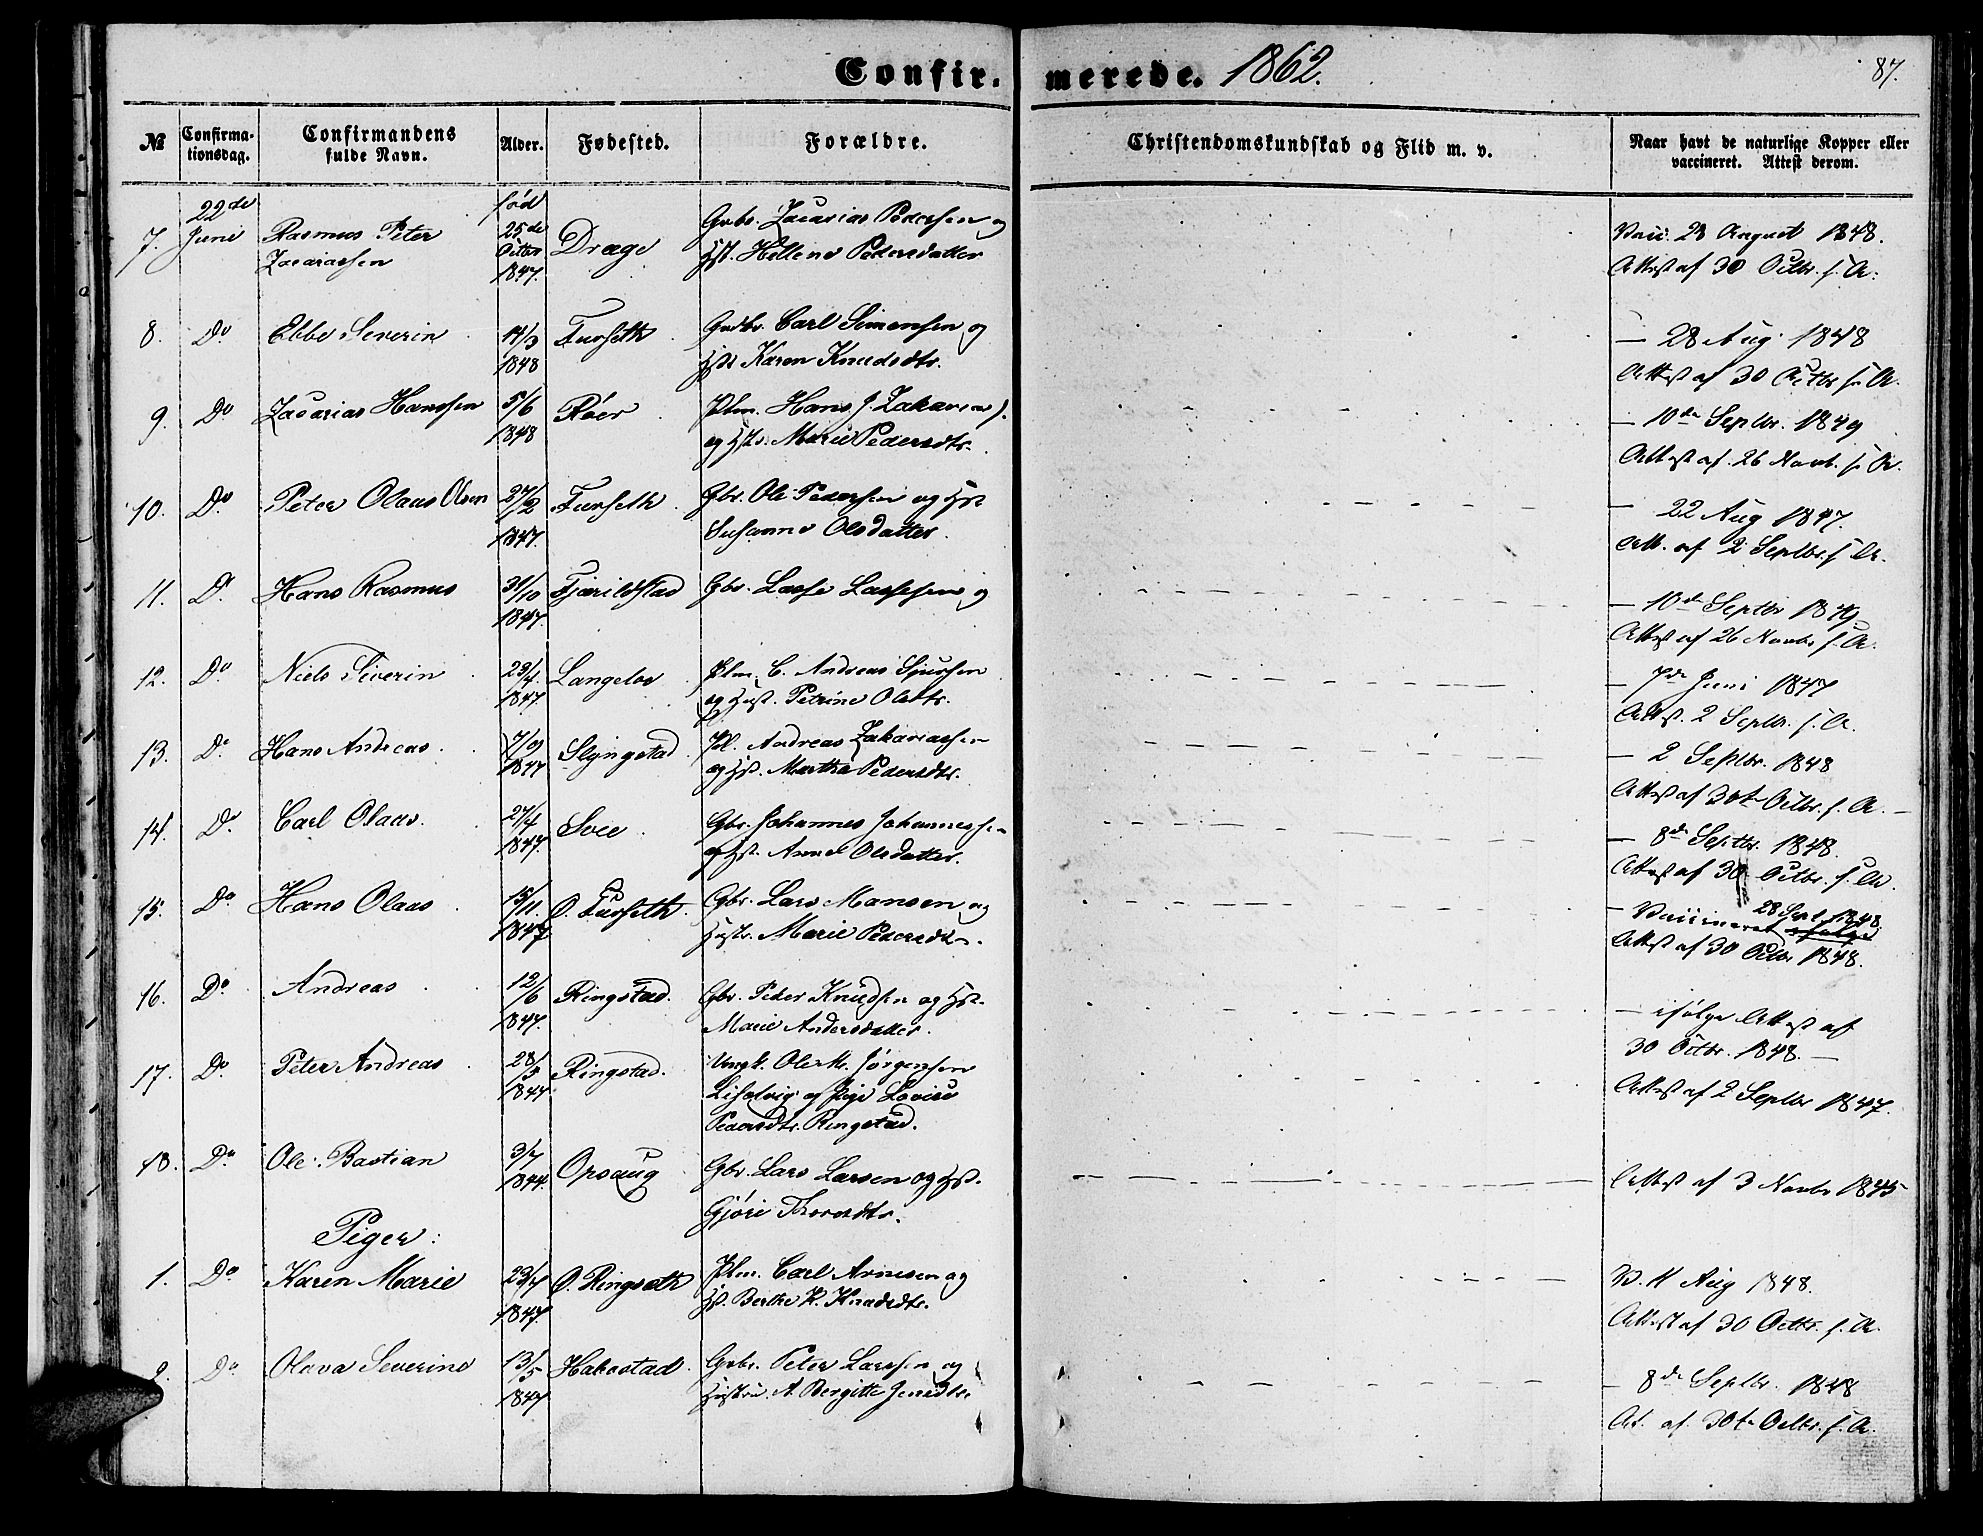 Confir.
merede. 1862.
87.
№
Confirma-
tionsdag.
Confirmandens
fulde Navn.
Alder.
Fødested.
Forældre.
Christendomskundskab og Flid m. v.
Naar havt de naturlige Kopper eller
vaccineret. Attest derom.
7. 22de Juni Rasmus Peter Zacariassen
født 25de Octbr 1847. Drage
Gbr. Zacarias Pedersen og
Hst. Hellene Pedersdatter
Vacc. 28 August 1848.
Attest af 30 Octbr. s. A.
8. Do Ebbe Severin 1848 Furseth
Gdbr. Carl Simensen og
Hst. Karen Knudsdtr.
— 28 Aug 1848
Attest af 30 Octbr s. A.
9. Do Zacarias Hanssen 5/6 1848 Röer
Plm. Hans J. Zakarias.
og Hst. Marie Pedersdtr.
— 10de Septbr. 1849
Attest af 26 Novb. s. A.
10. Do Peter Olaus Olsen 27/2 1847. Furseth
Gbr. Ole Pedersen og Hst
Susanne Olsdatter.
— 22 Aug 1847.
Att. af 2 Septbr. s. A.
11. Do Hans Rasmus 31/10 1847. Fjærildstad
Gbr. Lasse Lassesen og
— 10de Septbr 1849
Attest af 26 Novbr s. A.
12. Do Niels Siverin 23/4 1847. Langeloe
Plm. C. Andreas Sjursen
og Hust. Petrine Olsdtr.
— 7de Juni 1847
Attest. 2 Septbr. s. A.
13. Do Hans Andreas. 7/9 1847 Slyngstad
Pl. Andreas Zakariassen
og Hst. Martha Pedersdtr.
— 2 Septbr. 1848
Attest af 30te Octbr. s. A. —
14. Do Carl Olaus. 27/4 1847. Svee
Gbr. Johannes Johannessen
og Hst. Anne Olsdatter.
— 8de Septbr. 1848.
Attest af 30 Octbr. s. A.
15. Do Hans Olaus 15/11. 1847 Ø. Furseth.
Gbr. Lars Hansen og
Hustr. Marie Pedersdtr.
— Vaccineret 28 Sept 1848
Attest af 30 Octbr 1848.
16. Do Andreas 12/6 1847. Ringstad.
Gbr. Peder Knudsen og Hst.
Marie Andersdatter.
— ifølge Attest af
30 Octbr. 1848. —
17. Do Peter Andreas 28/3 1847 Ringstad.
Ungk. Ole M. Jörgensen
og Pige Lovise
Pedersdtr. Ringstad.
Attest af 2 Septbr 1847.
18. Do Ole Bastian 3/7 1844. Opsaug
Gbr. Lars Larsen og Hst.
Gjöri Thoresdtr.
Attest af 3 Novbr 1845
Piger:
1. Do Karen Marie 23/7 1847. Ø. Ringseth
Plm. Carl Arnesen og
Hst. Berthe K. Knudsdtr.
V. 11 Aug 1848.
Attest af 30 Octbr. s. A.
2. Do Olava Severine 13/5 1847 Hakestad.
Gbr. Peter Larsen og
Hustru. A. Bergitte Jensdtr
— 8de Septbr. 1848
At. af 30te Octbr. s. A.